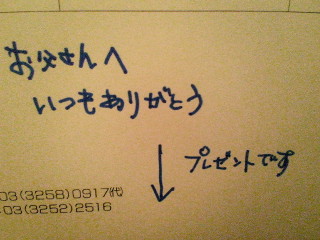 お父さんへ
いつもありがとう
↓ プレゼントです
03(3258)0917(代)
03(3252)2516